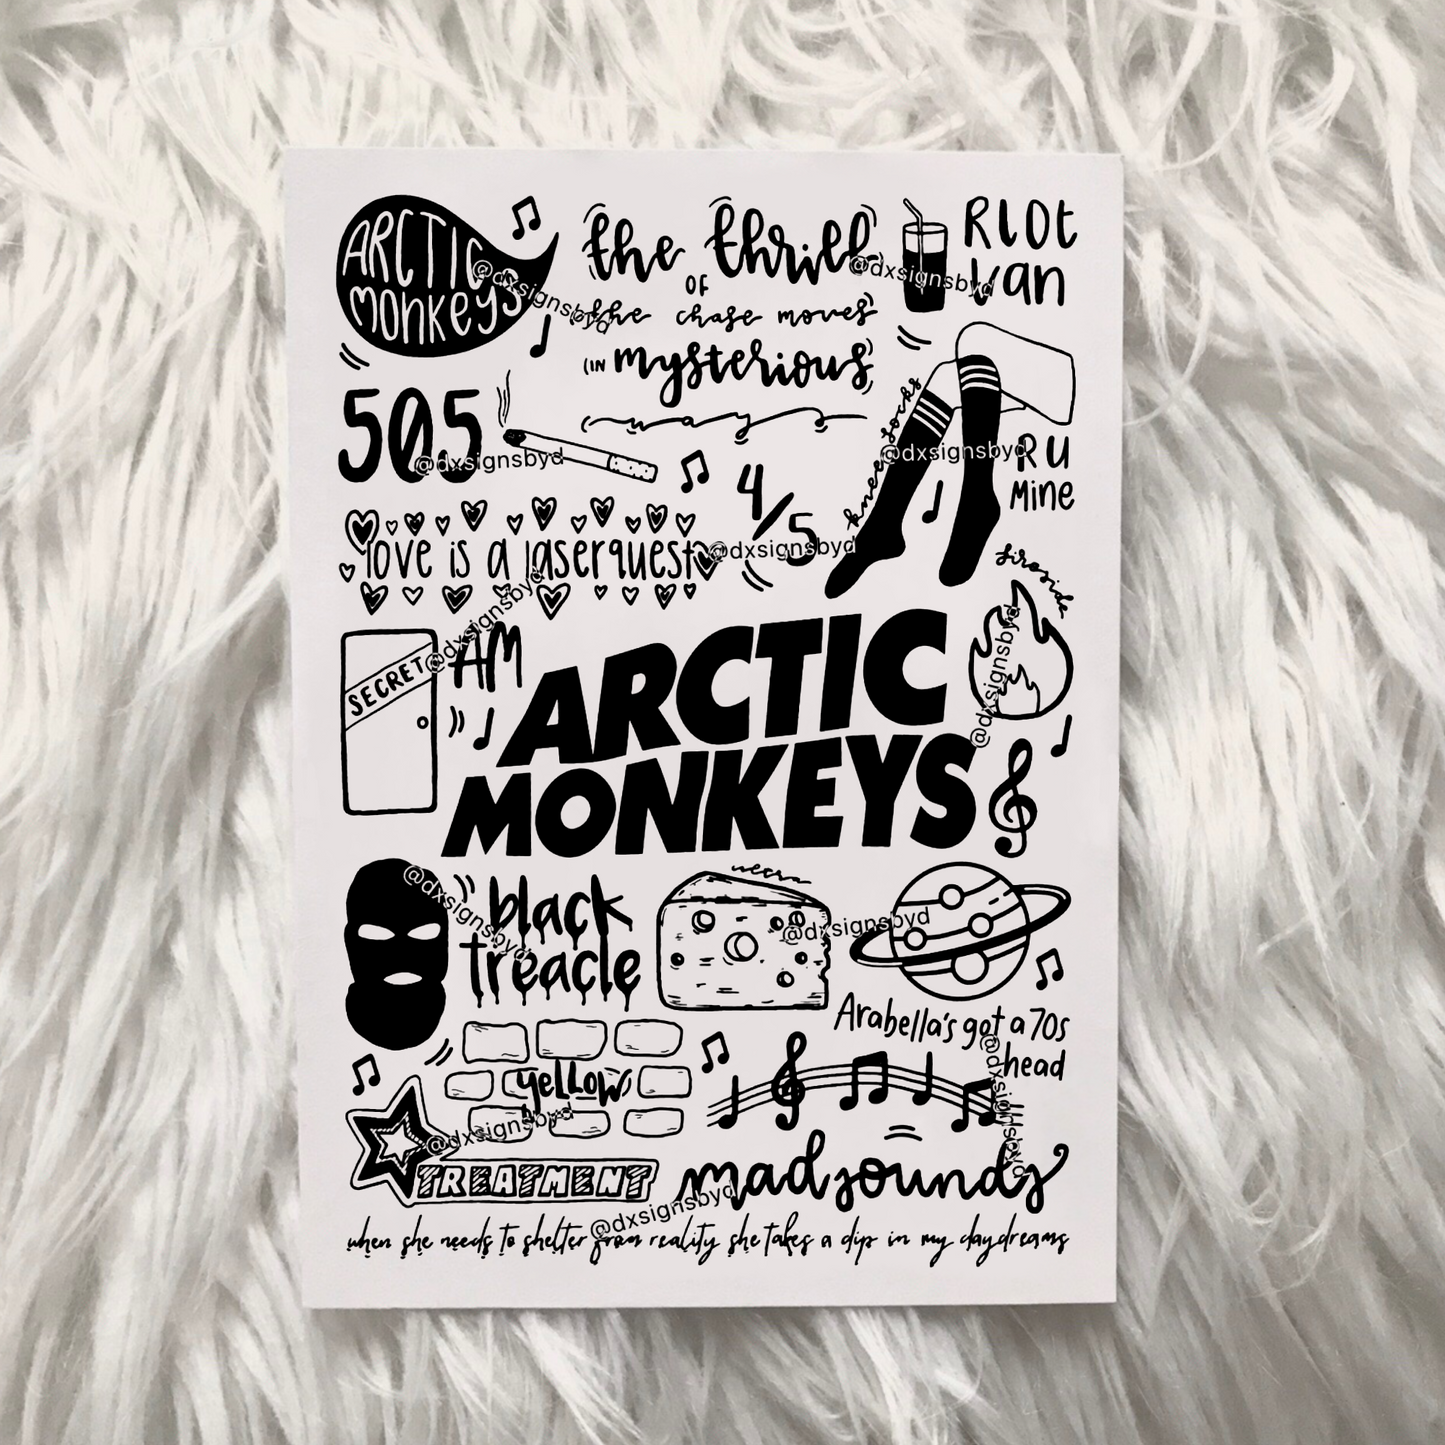 ARCTIC
MONKEYS
@dxsignsbyd
the thrill
OF
the chase moves
(IN mysterious
ways
@dxsignsbyd
RIOT
Van
505
@dxsignsbyd
knee socks
@dxsignsbyd
R U
Mine
4/5
love is a laserquest
@dxsignsbyd
@dxsignsbyd
fireside
@dxsignsbyd
SECRET
AM
ARCTIC
MONKEYS
@dxsignsbyd
black
treacle
@dxsignsbyd
Arabella's got a 70s
head
@dxsignsbyd
yellow
@dxsignsbyd
TREATMENT
mad sounds
@dxsignsbyd
when she needs to shelter from reality she takes a dip in my daydreams